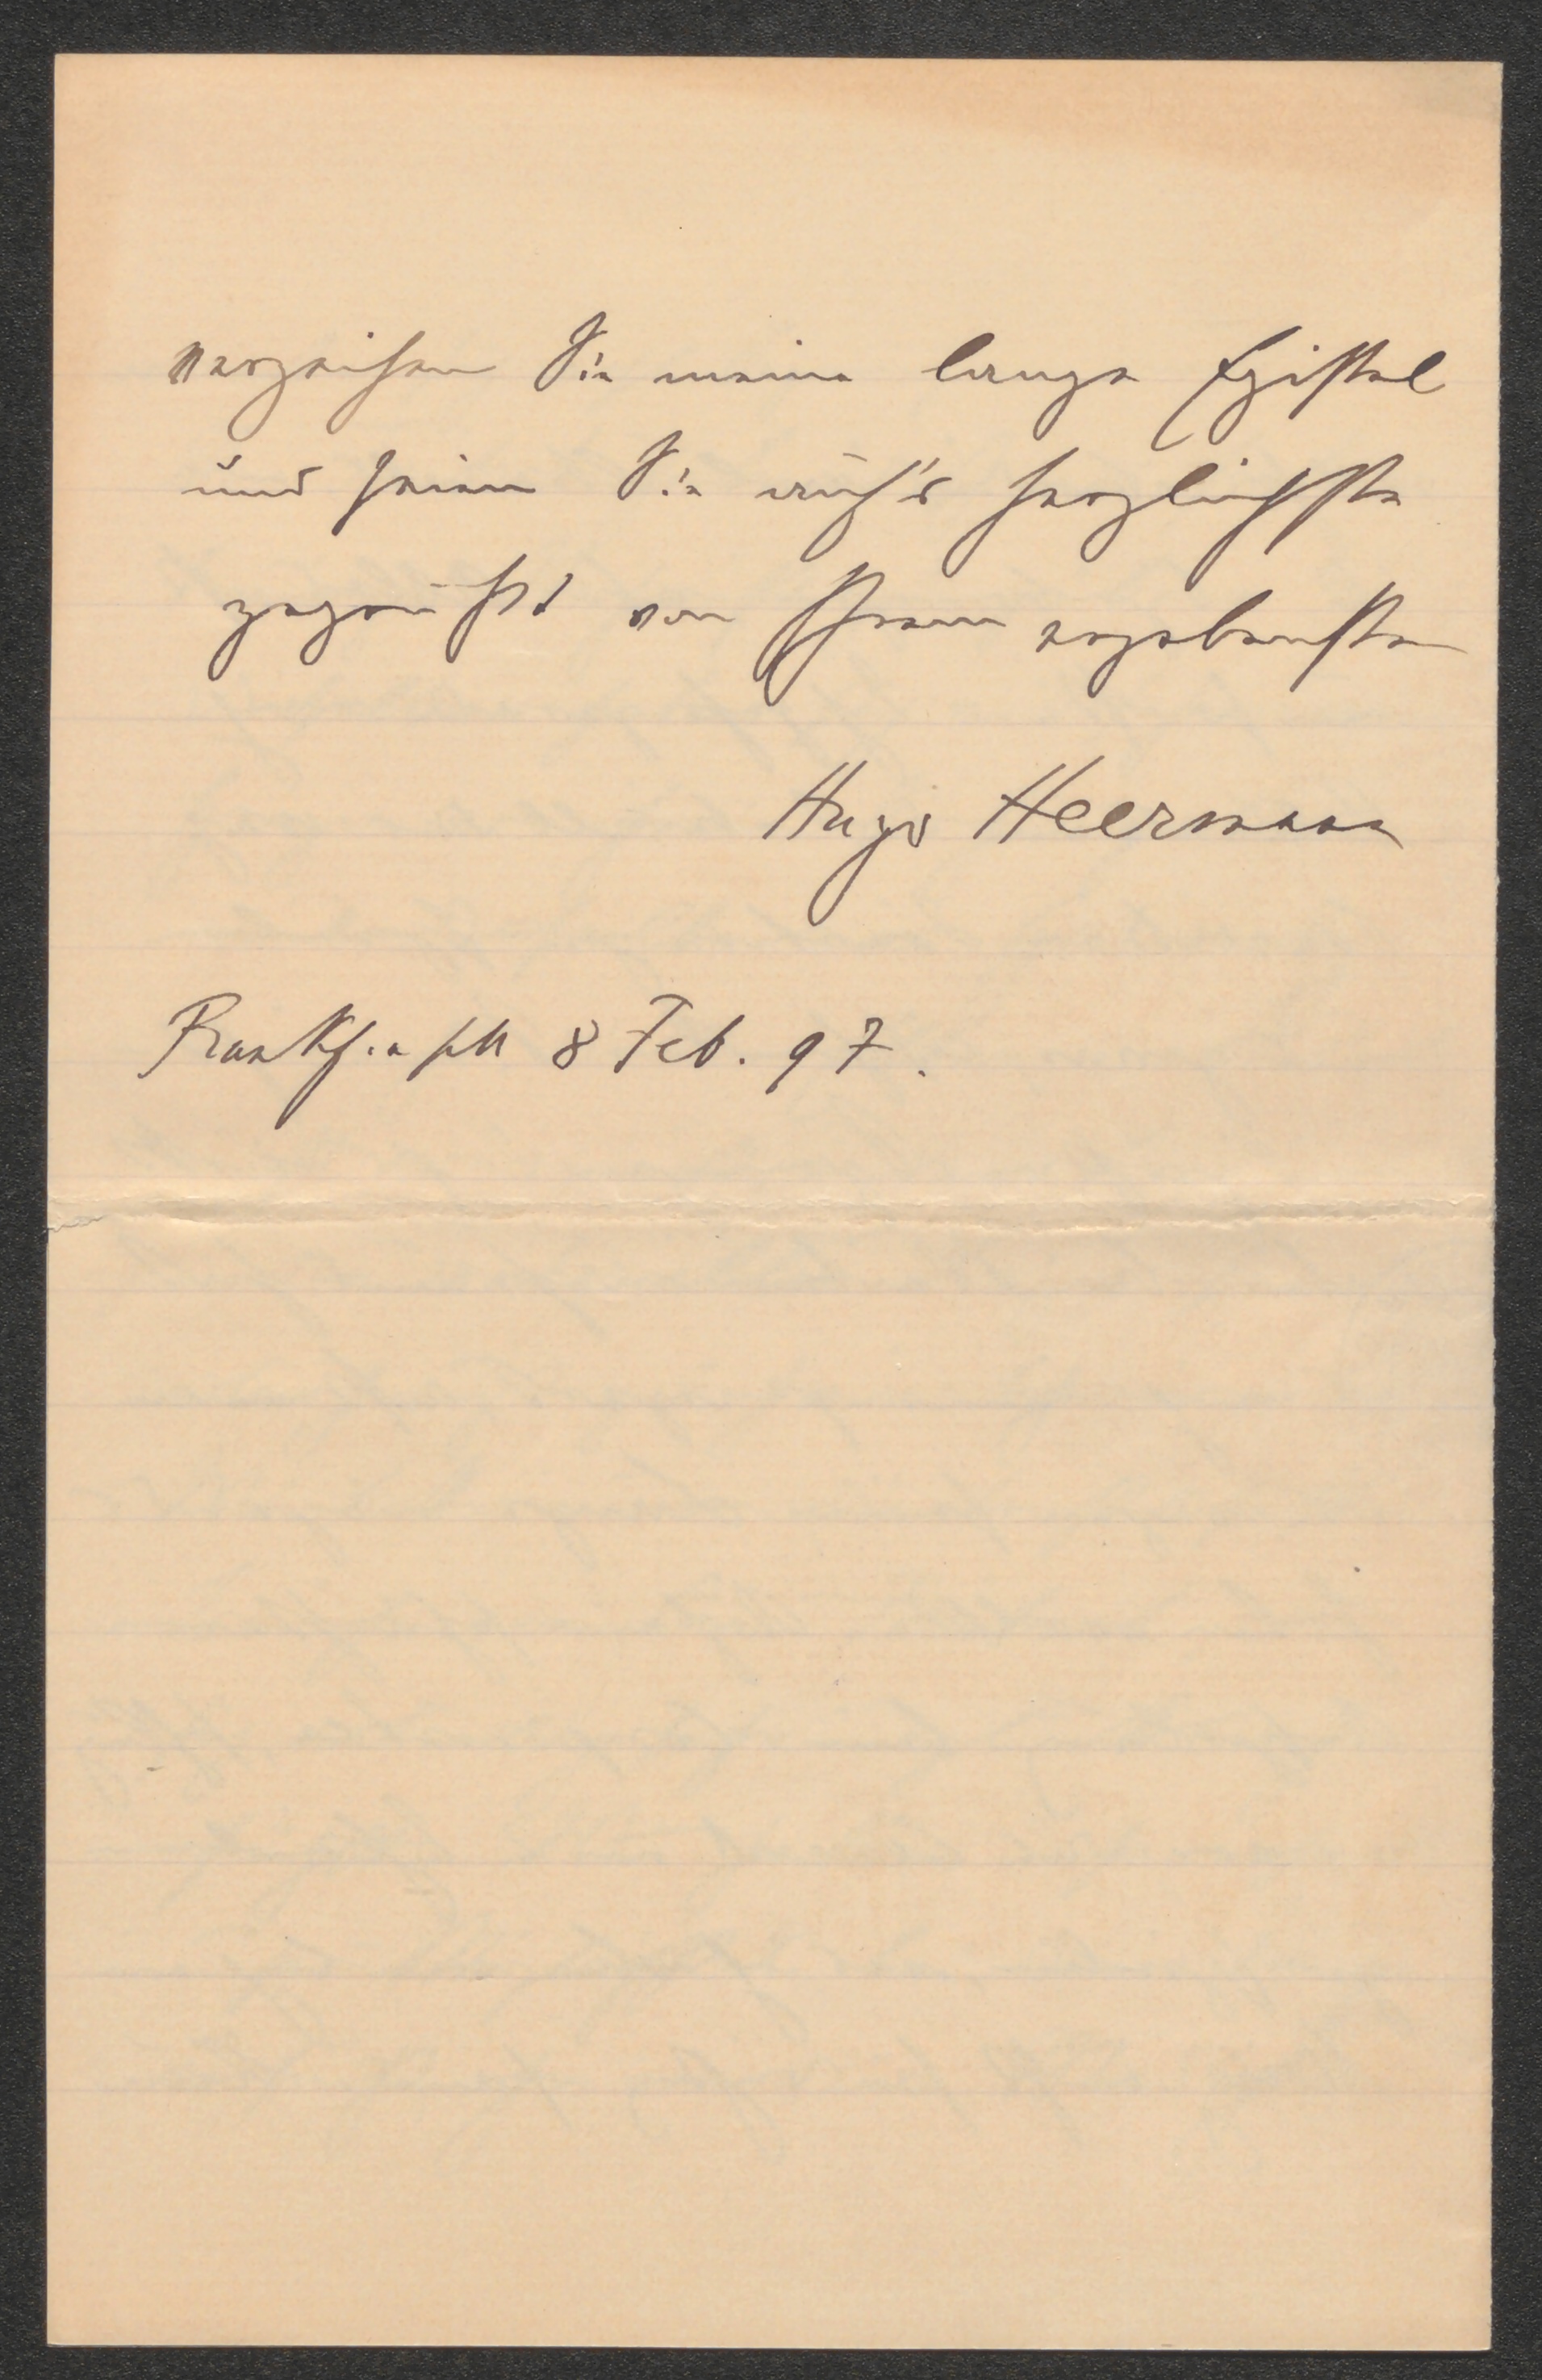 verzeihen Sie meine lange Epistel
und seien Sie auf's herzlichste
gegrüßt von Ihrem ergebensten
Hugo Heermann
Frankf. a/M 8 Feb. 97.